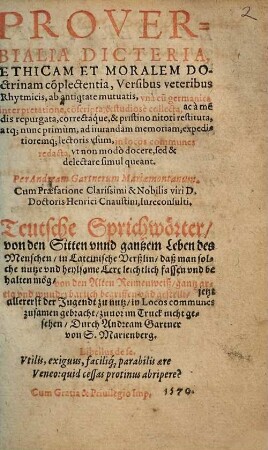 2
PROVER-
BIALIA DICTERIA,
ETHICAM ET MORALEM DO-
ctrinam cõplectentia, Versibus veteribus
Rhytmicis, ab antiqtate mutuatis, vnà cũ germanica
interpretatione, cõscripta & studiosè collecta, ac à mẽ
dis repurgata, correctaque, & pristino nitori restituta,
atq; nunc primum, ad iuuandam memoriam, expedi-
tioremq; lectoris vsum, in locos communes
redacta, vt non modo docere, sed &
delectare simul queant.
Per Andream Gartnerum Mariæmontanum.
Cum Præfatione Clarissimi & Nobilis viri D.
Doctoris Henrici Cnaustini, Iureconsulti.
Teutsche Sprichwörter/
von den Sitten vnnd gantzem Leben des
Menschen / in Lateinische Verßlin / daß man sol-
che nutze vnd heylsame Lere leichtlich fassen vnd be
halten mög / von den Alten Reimenweiß / gantz
vnd gestelt / jetzt
allererst der Jugendt zu nutz / in Locos communes
zusamen gebracht / zuuor im Truck nicht ge-
sehen / Durch Andream Gartner
von S. Marienberg.
Libellus de se.
Vtilis, exiguus, facilisq;, parabilis ære
Veneo: quid cessas protinus abripere?
Cum Gratia & Priuilegio Imp. 1570.